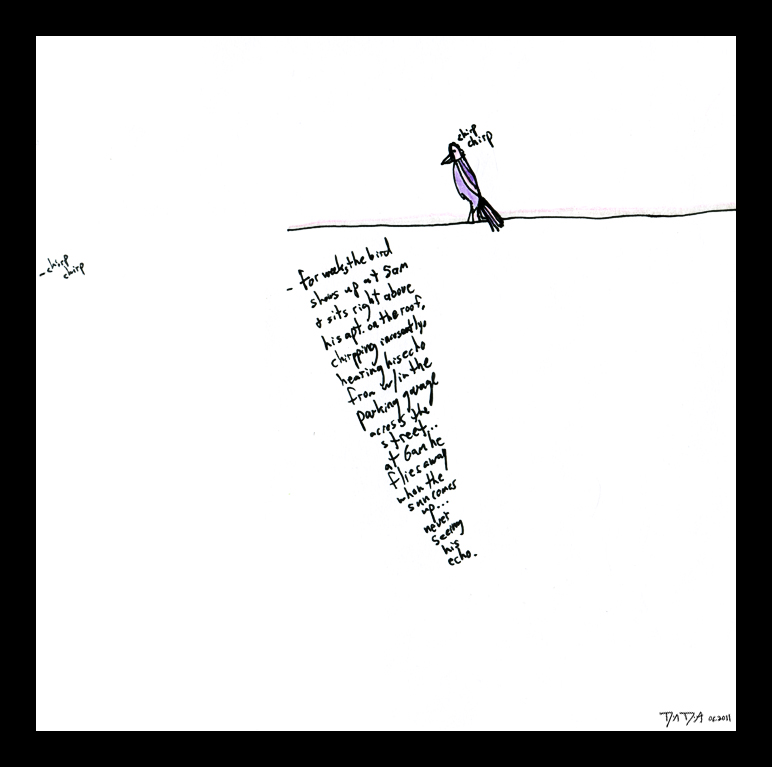 chirp
chirp
- chirp
chirp
- for weeks, the bird
shows up at 5am
& sits right above
his apt. on the roof,
chirpping incessantly,
hearing his echo
from w/in the
parking garage
across the
street...
at 6am he
flies away
when the
sun comes
up...
never
seeing
his
echo.
DADA 06.2011